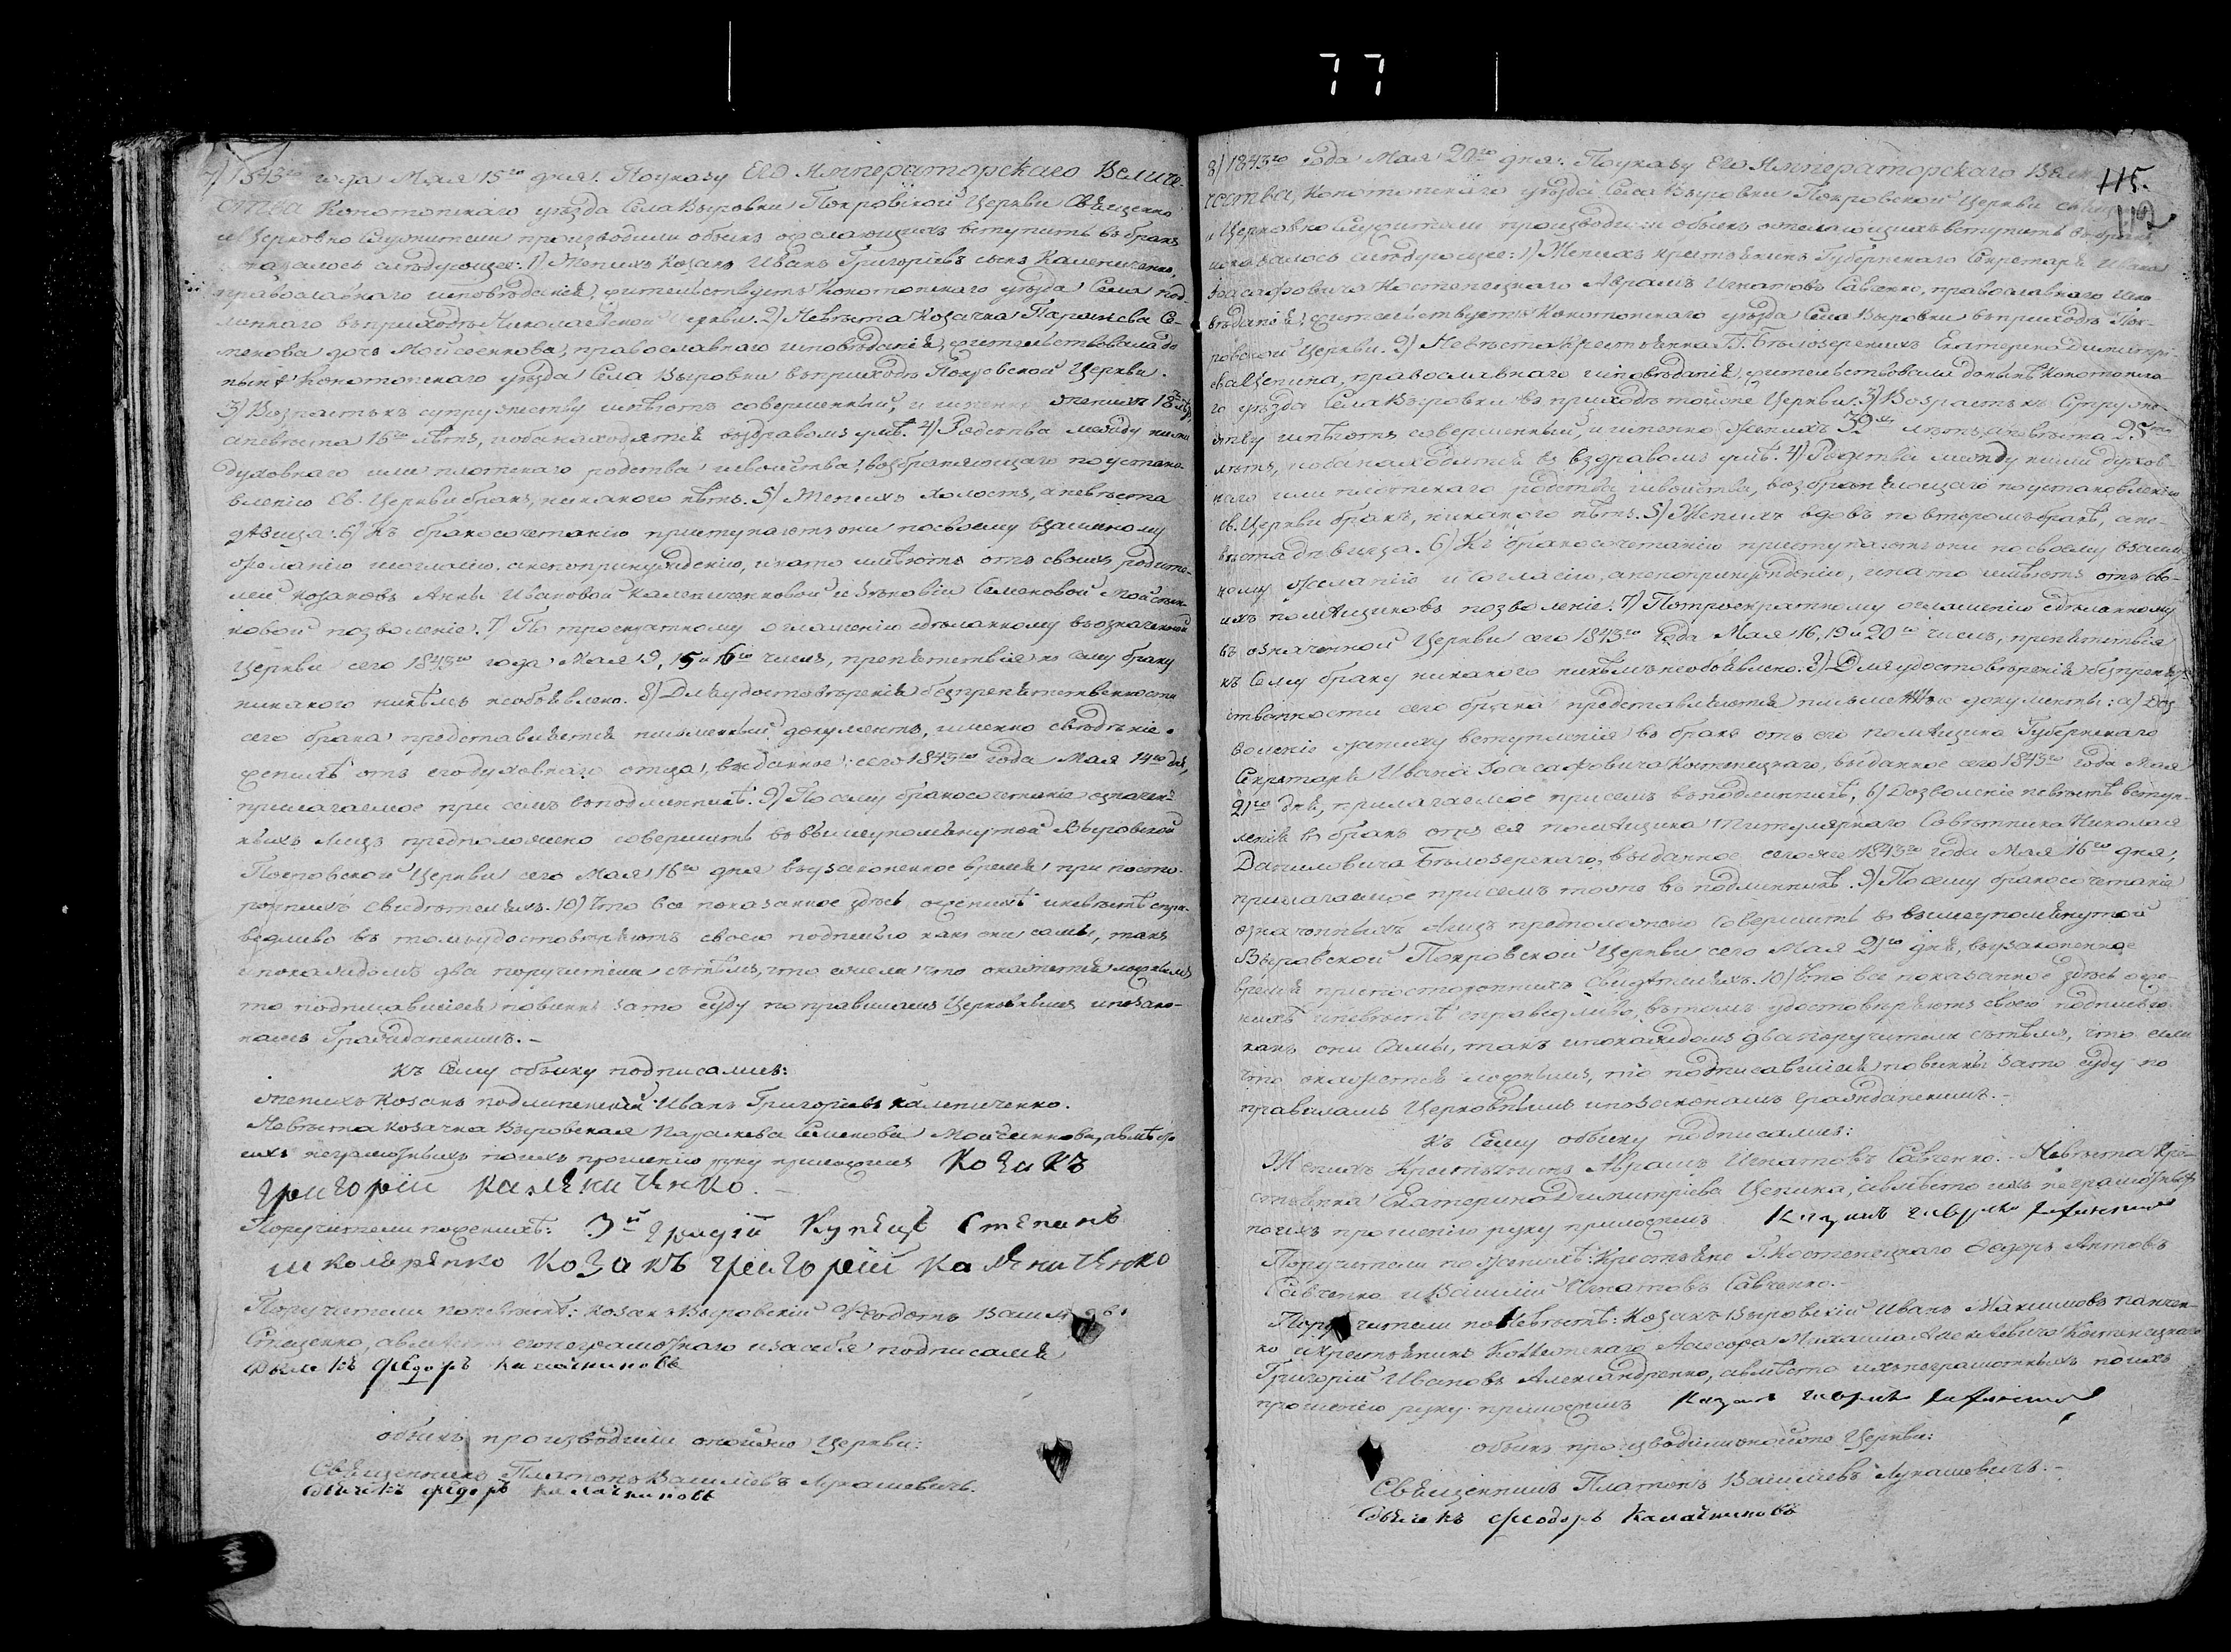 77
7) 1843го года Мая 15го дня. По указу Его Императорскаго Величе-
ства Конотопскаго уѣзда Села Выровки Покровской Церкви Священно
и Церковно Служители производили обыскъ о желающихъ вступить въ бракъ
и оказалось слѣдующее: 1) Женихъ Козакъ Иванъ Григорьевъ сынъ Каленниченко,
православнаго исповѣданія, жительствуетъ Конотопскаго уѣзда Села Под-
липнаго въ приходѣ Николаевской Церкви. 2) Невѣста Козачка Параскева Се-
менова дочь Мойсеенкова, православнаго исповѣданія, жительствовала до
нынѣ Конотопскаго уѣзда Села Выровки въ приходѣ Покровской Церкви.
3) Возрастъ къ супружеству имѣютъ совершенный, и именно женихъ 18 лѣтъ,
а невѣста 16 лѣтъ, и оба находятся въ здравомъ умѣ. 4) Родства между ними
духовнаго или плотскаго родства и свойства, возбраняющаго по устано-
влению Св. Церкви бракъ, никакого нѣтъ. 5) Женихъ холостъ, а невѣста
дѣвица. 6) Къ бракосочетанію приступаютъ они по своему взаимному
желанію и согласію, а не по принужденію, и на то имѣютъ отъ своихъ родите-
лей козаковъ Анны Ивановой Каленниченковой и Зѣновіи Семеновой Мойсеен-
ковой позволеніе. 7) По троекратному оглашенію сдѣланному въ означенной
Церкви сего 1843го года Мая 9, 15 и 16го числъ, препятствія къ сему браку
никакого никѣмъ не объявлено. 8) Для удостовѣренія безпрепятственности
сего брака представляется письменный документъ, именно свѣдѣніе о
женихѣ отъ его духовнаго отца, выданное сего 1843го года Мая 14го дня,
прилагаемое при семъ въ подлинникѣ. 9) По сему бракосочетаніе означен-
ныхъ лицъ предположено совершить въ вышеупомянутой Выровской
Покровской Церкви сего Мая 16го дня въ узаконенное время при посто-
роннихъ свидѣтеляхъ. 10) Что все показанное здѣсь о женихѣ и невѣстѣ спра-
ведливо въ томъ удостовѣряютъ своею подписью какъ они сами, такъ
и по каждомъ два поручителя съ тѣмъ, что если что окажется ложнымъ
то подписавшіеся повинны за то суду по правиламъ Церковнымъ и по зако-
намъ Гражданскимъ.-
къ Сему обыску подписались:
женихъ Козакъ подлипенскій Иванъ Григорьевъ Каленниченко.
Невѣста козачка Выровская Параскева Семенова Мойсеенкова, а вмѣсто
ихъ неграмотныхъ по ихъ прошенію руку приложилъ Козакъ
григорій каленниченко.-
Поручители по женихѣ: 3й гилдіи Купецъ Степанъ
школяренко козакъ григорій каленниченко
Поручители по невѣстѣ: козакъ Выровскій Ѳеодотъ Васильевъ
Стеценко, а вмѣсто его неграмотнаго и за себя подписался
Дьячекъ Федоръ Калашниковъ
обыскъ производили оной же Церкви:
Священникъ Платонъ Васильевъ Лукашевичъ.
Дьячекъ Федоръ Калашниковъ
115.
112
8) 1843го года Мая 20го дня. По указу Его Императорскаго Вели-
чества, Конотопскаго уѣзда Села Выровки Покровской Церкви Священно
и Церковно Служители производили обыскъ о желающихъ вступить въ бракъ,
и оказалось слѣдующее: 1) Женихъ крестьянинъ Губернскаго Секретаря Ивана
Іоасафовича Костенецкаго Аврамъ Игнатовъ Савченко, православнаго испо-
вѣданія, жительствуетъ Конотопскаго уѣзда Села Выровки въ приходѣ Пок-
ровской Церкви. 2) Невѣста Крестьянка Г. Бѣлозерскихъ Екатерина Димитрі-
ева Цепина, православнаго исповѣданія, жительствовала донынѣ Конотопска-
го уѣзда Села Выровки въ приходѣ той же Церкви. 3) Возрастъ къ Супруже-
ству имѣютъ совершенный, и именно женихъ 39 лѣтъ, а невѣста 25
лѣтъ, и оба находятся въ здравомъ умѣ. 4) Родства между ними духов-
наго или плотскаго родства и свойства, возбраняющаго по установленію
св. Церкви бракъ, никакого нѣтъ. 5) Женихъ вдовъ по второмъ бракѣ, а не-
вѣста дѣвица. 6) Къ бракосочетанію приступаютъ они по своему взаим-
ному желанію и согласію, а не по принужденію, и на то имѣютъ отъ сво-
ихъ помѣщиковъ позволеніе. 7) По троекратному оглашенію сдѣланному
въ означенной Церкви сего 1843го года Мая 16, 19 и 20го числъ, препятствія
къ Сему браку никакого никѣмъ не объявлено. 8) Для удостовѣренія безпрепят-
ственности сего брака представляются письменные документы: а) Доз-
воленіе жениху вступленія въ бракъ отъ его помѣщика Губернскаго
Секретаря Ивана Іоасафовича Костенецкаго, выданное сего 1843го года Мая
21го дня, прилагаемое при семъ въ подлинникѣ, б) Дозволеніе невѣстѣ вступ-
ленія въ бракъ отъ ея помѣщика Титулярнаго Совѣтника Николая
Даниловича Бѣлозерскаго, выданное сего же 1843го года Мая 16го дня,
прилагаемое при семъ тоже въ подлинникѣ. 9) По сему бракосочетаніе
означенныхъ лицъ предположено совершить въ вышеупомянутой
Выровской Покровской Церкви сего Мая 21го дня, въ узаконенное
время при постороннихъ свидѣтеляхъ. 10) Что все показанное здѣсь о же-
нихѣ и невѣстѣ справедливо, въ томъ удостовѣряютъ своею подписью
какъ они Сами, такъ и по каждомъ два поручителя съ тѣмъ, что если
что окажется ложнымъ, то подписавшіеся повинны за то суду по
правиламъ Церковнымъ и по законамъ гражданскимъ.-
къ Сему обыску подписались:
Женихъ Крестьянинъ Аврамъ Игнатовъ Савченко. - Невѣста Кре-
стьянка Екатерина Димитріева Цепина, а вмѣсто ихъ неграмотныхъ
по ихъ прошенію руку приложилъ
Поручители по женихѣ: Крестьяне Г. Костенецкаго Ѳедоръ Антовъ
Савченко и Василій Игнатовъ Савченко.-
Поручители по Невѣстѣ: Козакъ Выровскій Иванъ Максимовъ Панчен-
ко и крестьянинъ Коллежскаго Асессора Михаила Алексѣевича Костенецкаго
Григорій Ивановъ Александренко, а вмѣсто ихъ неграмотныхъ по ихъ
прошенію руку приложилъ
обыскъ производили оной же Церкви:
Священникъ Платонъ Васильевъ Лукашевичъ.-
Дьячекъ Феодоръ Калашниковъ